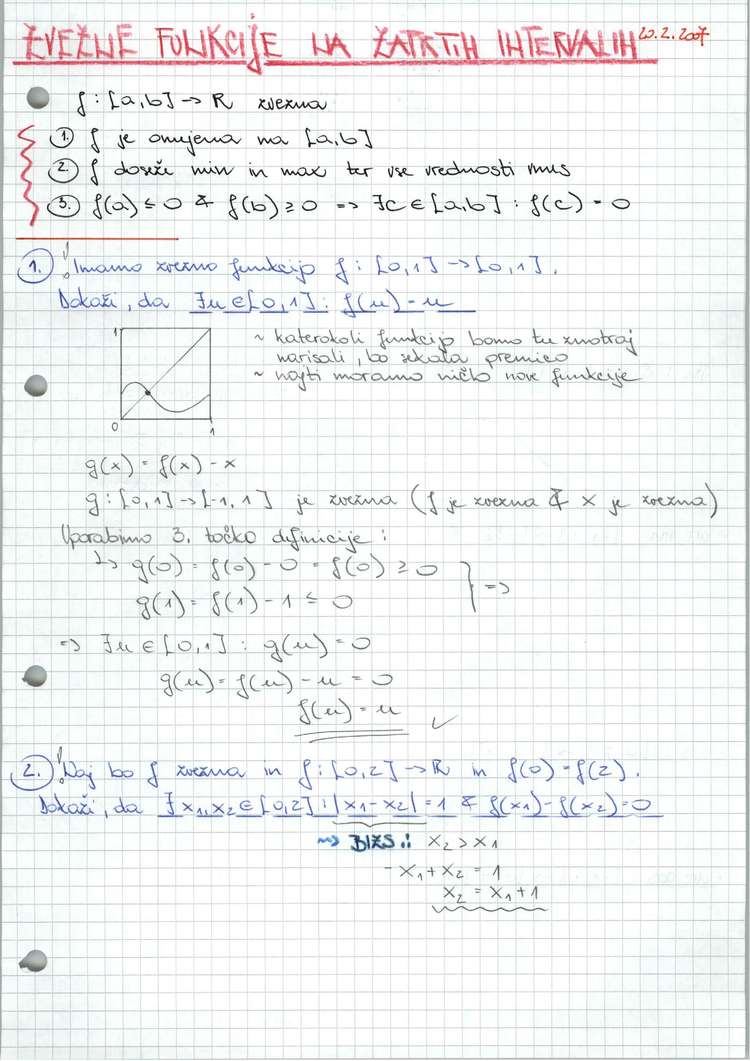 ZVEZNE FUNKCIJE NA ZAPRTIH INTERVALIH 20.2.2007
f : [a,b] → R zvezna
1. f je omejena na [a,b]
2. f doseže min in max ter vse vrednosti vmes
3. f(a) ≤ 0 & f(b) ≥ 0 => ∃c ∈ [a,b] : f(c) = 0
1. ! Imamo zvezno funkcijo f : [0,1] → [0,1].
Dokaži, da ∃u ∈ [0,1] : f(u) = u
1
~ katerokoli funkcijo bomo tu znotraj
narisali, bo sekala premico
~ najti moramo ničlo nove funkcije
0 1
g(x) = f(x) - x
g : [0,1] → [-1,1] je zvezna (f je zvezna & x je zvezna)
Uporabimo 3. točko definicije :
↳ g(0) = f(0) - 0 = f(0) ≥ 0
g(1) = f(1) - 1 ≤ 0 } =>
=> ∃u ∈ [0,1] : g(u) = 0
g(u) = f(u) - u = 0
f(u) = u ✓
2. ! Naj bo f zvezna in f : [0,2] → R in f(0) = f(2).
Dokaži, da ∃x₁,x₂ ∈ [0,2] : |x₁-x₂| = 1 & f(x₁)-f(x₂)=0
~> BIZS : x₂ > x₁
-x₁ + x₂ = 1
x₂ = x₁ + 1